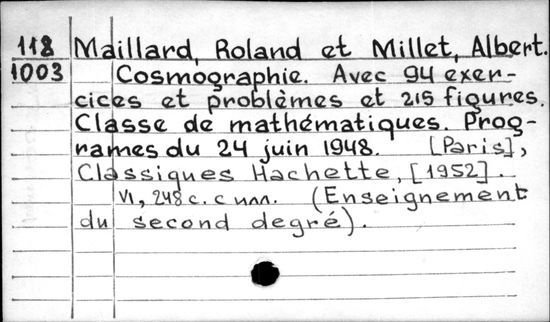 118 Maillard, Roland et Millet, Albert.
1003 Cosmographie. Avec 94 exer-
cices et problèmes et 215 figures.
Classe de mathématiques. Prog-
rames du 24 juin 1948. [Paris],
Classiques Hachette, [1952].
VI, 248 с. с илл. (Enseignement
du second degré).